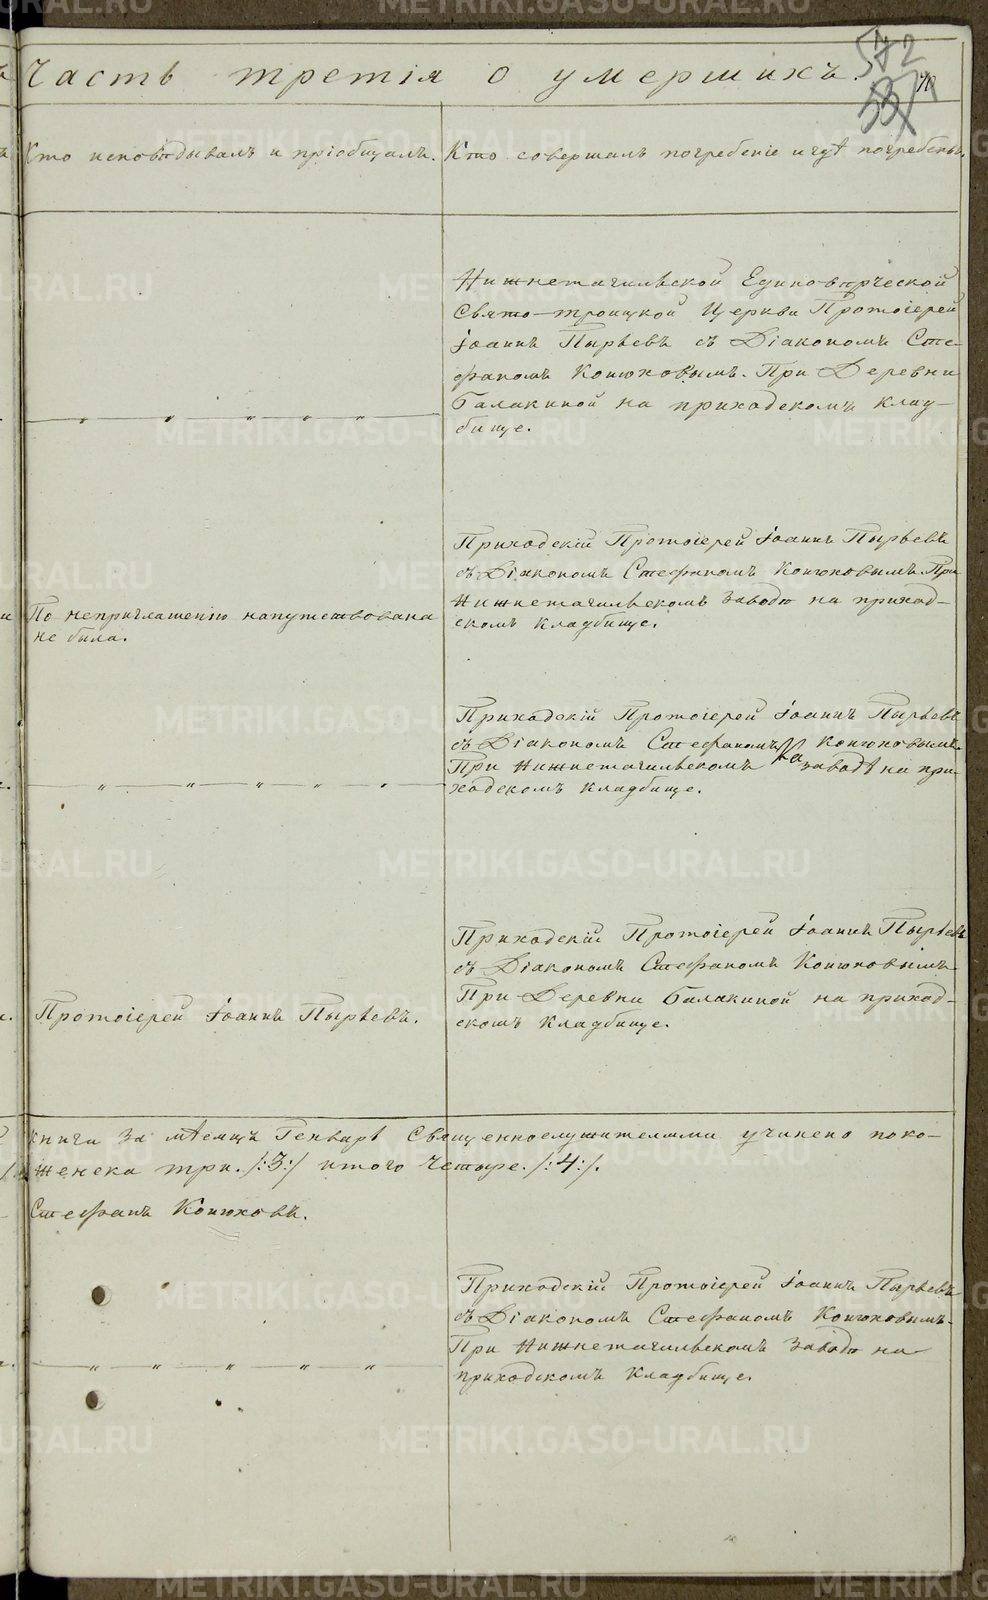 Часть третія о умершихъ.
572
Кто исповѣдывалъ и пріобщалъ.
Кто совершалъ погребеніе и гдѣ погребены.
Нижнетагильской Единовѣрческой
Свято-троицкой Церкви Протоіерей
Іоаннъ Пырьевъ съ Діакономъ Сте-
фаномъ Конюховымъ. При Деревни
Балакиной на приходскомъ клад-
бище.
Приходскій Протоіерей Іоаннъ Пырьевъ
съ Діакономъ Стефаномъ Конюховымъ При
Нижнетагильскомъ Заводѣ на приход-
скомъ кладбище.
По неприглашенію напутствована
не была.
Приходскій Протоіерей Іоаннъ Пырьевъ
съ Діакономъ Стефаномъ Конюховымъ.
При Нижнетагильскомъ заводѣ на при-
ходскомъ кладбище.
Приходскій Протоіерей Іоаннъ Пырьевъ
съ Діакономъ Стефаномъ Конюховымъ
При Деревни Балакиной на приход-
скомъ кладбище.
Протоіерей Іоаннъ Пырьевъ.
книги За мѣсяцъ Генварь Священнослужителями учинено поко-
женска три. /:3:/ итого Четыре. /:4:/.
Стефанъ Конюховъ.
Приходскій Протоіерей Іоаннъ Пырьевъ
съ Діакономъ Стефаномъ Конюховымъ.
При Нижнетагильскомъ Заводѣ на
приходскомъ Кладбище.
METRIKI.GASO-URAL.RU